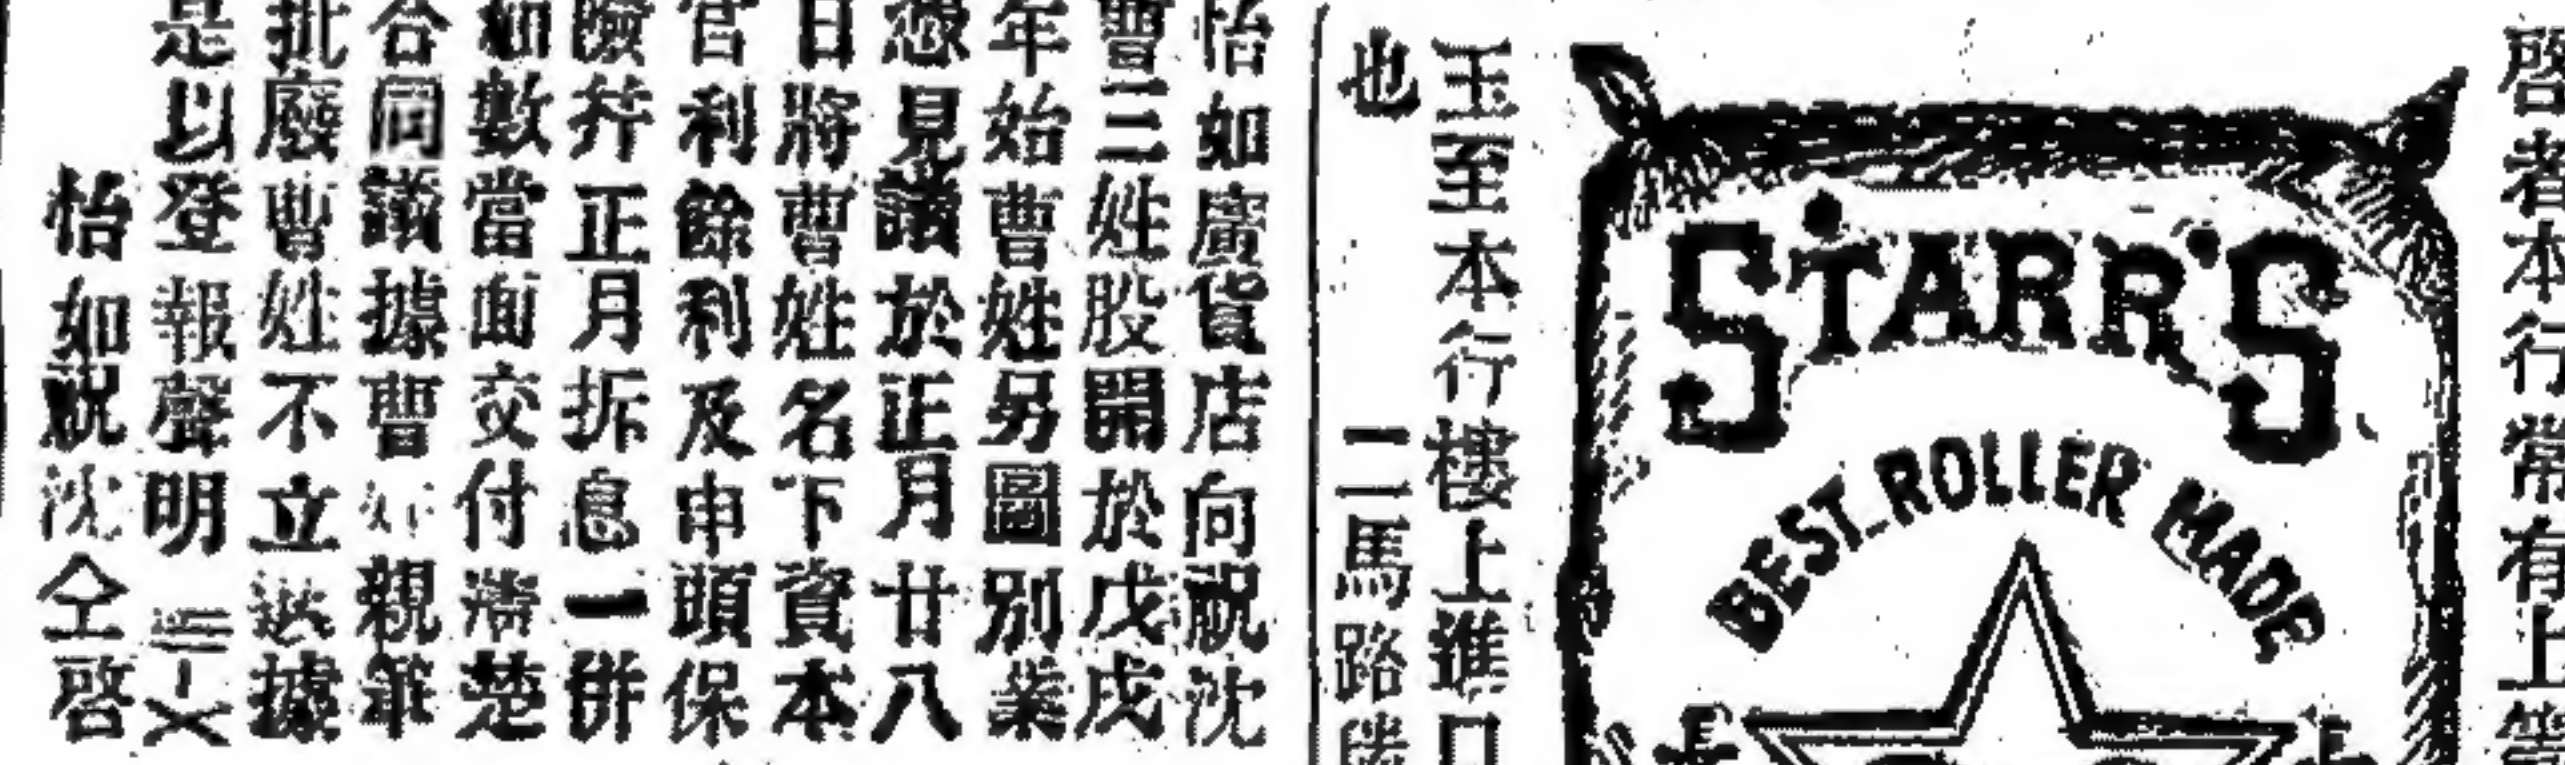 啓者本行常有上等
STARR'S
BEST ROLLER MADE
玉至本行樓上進口
也 二馬路隆
怡如廣貨店向祝沈
曹三姓股開於戊戌
年始曹姓另圖別業
憑見議於正月廿八
日將曹姓名下資本
官利餘利及申頭保
險并正月拆息一併
如數當面交付清楚
合同議據曹 親筆
批廢曹姓不立 據
是以登報聲明
怡如祝沈仝啓